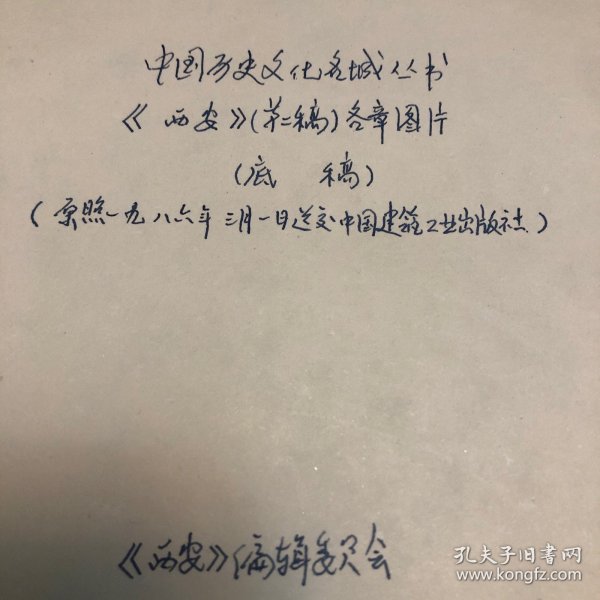 中国历史文化名城丛书
《西安》(第二稿)各章图片
(底 稿)
(原照一九八六年三月一日送交中国建筑工业出版社)
《西安》编辑委员会
孔夫子旧书网
www.kongfz.com